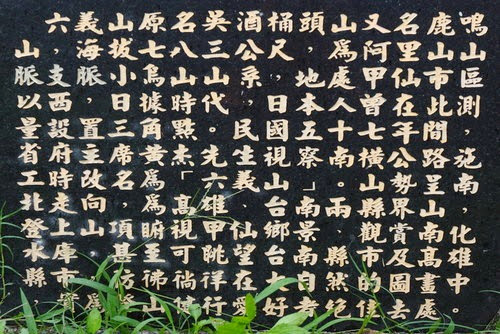 鳴山區測，施南，化雄中。
鹿山市此間路呈山南高畫處
名里仙在平公勢界賞及圖去
又阿甲曾七橫山縣觀市的佳
山為處人十南。兩，縣然絕
頭，地本五察」南景南自者
桶尺，日國視山台鄉台大好
酒公系，民生義，仙望在愛
吳三山代。先六雄甲眺祥行
名八山時點杰「高視可徜健
原七烏據角黃為為俯至彿山
山拔小日三席名，項甚
義海脈，置主改向山，
六，支西設府時走上庫市
山脈以量省工北登水縣，